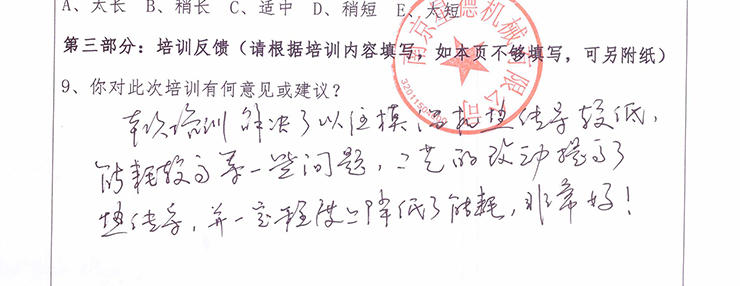 A、太长 B、稍长 C、适中 D、稍短 E、太短
第三部分：培训反馈（请根据培训内容填写，如本页不够填写，可另附纸）
9、你对此次培训有何意见或建议？
本次培训解决了以往模温机热传导较低，
能耗较高等一些问题，工艺的改动提高了
热传导，并一定程度上降低了能耗，非常好！
南京星德机械有限公司